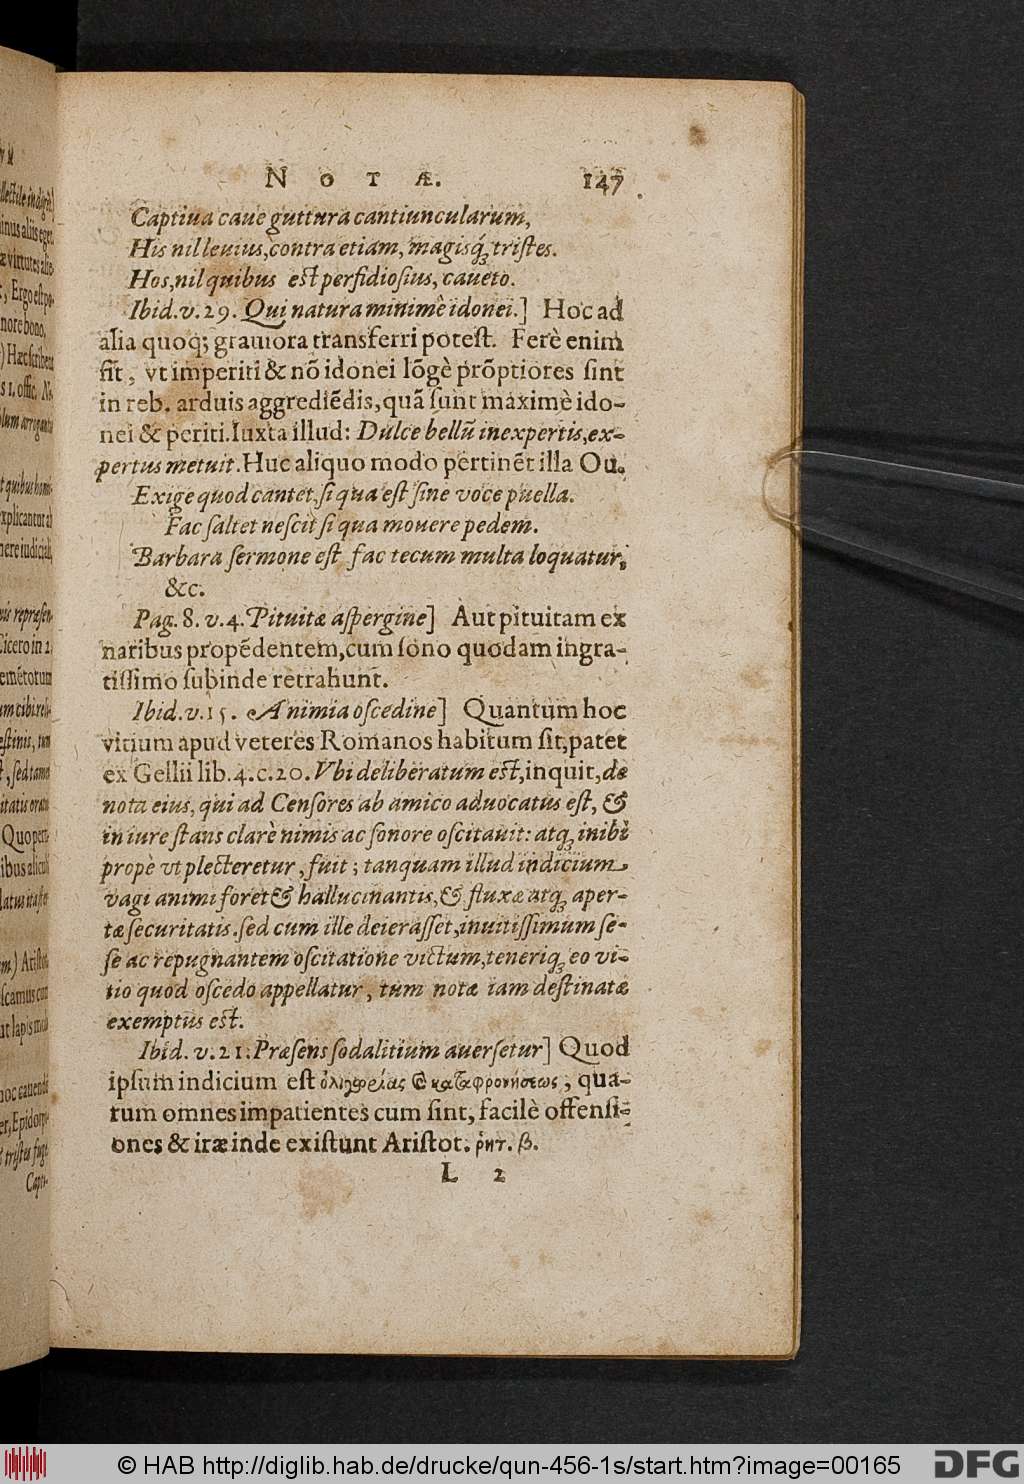 NOTÆ. 147
Captiua caue guttura cantiuncularum,
His nil leuius, contra etiam, magisq́; tristes.
Hos, nil quibus est perfidiosius, caueto.
Ibid. v. 29. Qui natura minimè idonei.] Hoc ad
alia quoq; grauiora transferri potest. Ferè enim
fit, vt imperiti & nõ idonei lõgè prõptiores sint
in reb. arduis aggrediẽdis, quã sunt maximè ido-
nei & periti. Iuxta illud: Dulce bellũ inexpertis, ex-
pertus metuit. Huc aliquo modo pertinẽt illa Ou.
Exige quod cantet, si qua est sine voce puella.
Fac saltet nescit si qua mouere pedem.
Barbara sermone est fac tecum multa loquatur,
&c.
Pag. 8. v. 4. Pituitæ aspergine] Aut pituitam ex
naribus propẽdentem, cum sono quodam ingra-
tissimo subinde retrahunt.
Ibid. v. 15. Animia oscedine] Quantum hoc
vitium apud veteres Romanos habitum sit, patet
ex Gellii lib. 4. c. 20. Vbi deliberatum est, inquit, de
nota eius, qui ad Censores ab amico aduocatus est, &
in iure stans clarè nimis ac sonore oscitauit: atq; inibi
propè vt plecteretur, fuit; tanquam illud indicium
vagi animi foret & hallucinantis, & fluxæ atq; aper-
tæ securitatis. sed cum ille deierasset, inuitissimum se-
se ac repugnantem oscitatione victum, teneriq; eo vi-
tio quod oscedo appellatur, tum notæ iam destinatæ
exemptus est.
Ibid. v. 21. Præsens sodalitium auersetur] Quod
ipsum indicium est ὀλιγωρίας & καταφρονήσεως, qua-
rum omnes impatientes cum sint, facilè offensi-
ones & iræ inde existunt Aristot. ῥητ. β.
L 2
© HAB http://diglib.hab.de/drucke/qun-456-1s/start.htm?image=00165
DFG